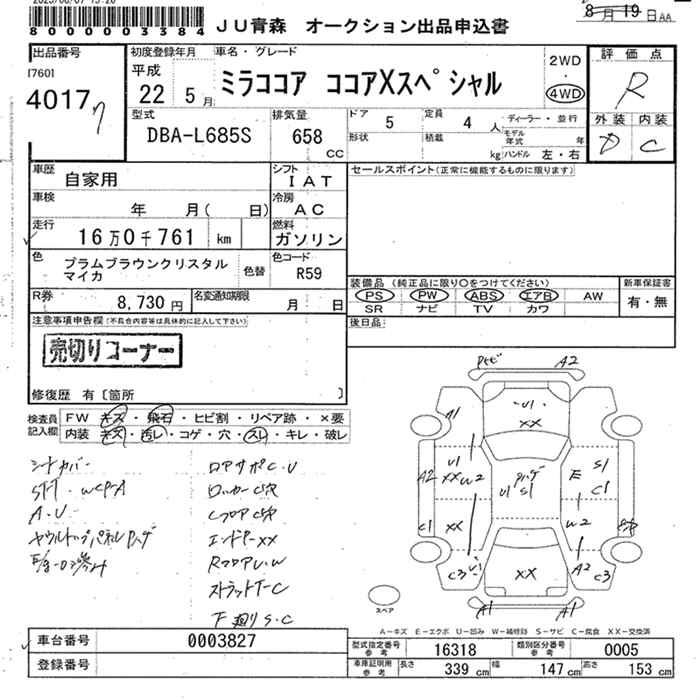 8000003384 JU青森 オークション出品申込書 8月19日AA
出品番号
[760]
4017
初度登録年月
平成
22 5月
車名・グレード
ミラココア ココアXスペシャル
2WD
・
4WD
評価点
R
型式
DBA-L685S
排気量
658 CC
ドア 5
定員 4 人
形状
積載 kg
ディーラー・並行
モデル年式 年
ハンドル 左・右
外装 内装
D C
車歴
自家用
シフト
IAT
セールスポイント(正常に機能するものに限ります)
車検
年 月( 日)
冷房
AC
走行
16万0千761 km
燃料
ガソリン
色
プラムブラウンクリスタル
マイカ
色替
色コード
R59
装備品(純正品に限り○をつけてください)
PS PW ABS エアB AW
SR ナビ TV カワ
新車保証書
有・無
R券 8,730円
名変通知期限 月 日
後日品
注意事項申告欄(不具合内容等は具体的に記入して下さい)
売切りコーナー
修復歴 有〔箇所 〕
検査員記入欄
FW キズ・飛石・ヒビ割・リペア跡・×要
内装 キズ・汚レ・コゲ・穴・スレ・キレ・破レ
シートカバー
A.U
ロアサポC.U
エンドP XX
RフロアU.W
ストラットT-C
下廻りS.C
A2
A1
U1
XX
U1
XX W2
A2
U1 S1
E
S1
C1
C1
XX
W2
C3
U1
XX
A2
C3
A1
A1
スペア
A-キズ E-エクボ U-凹み W-補修跡 S-サビ C-腐食 XX-交換済
車台番号 0003827
登録番号
型式指定番号 参考 16318
類別区分番号 参考 0005
車庫証明用 参考 長さ 339cm 幅 147cm 高さ 153cm